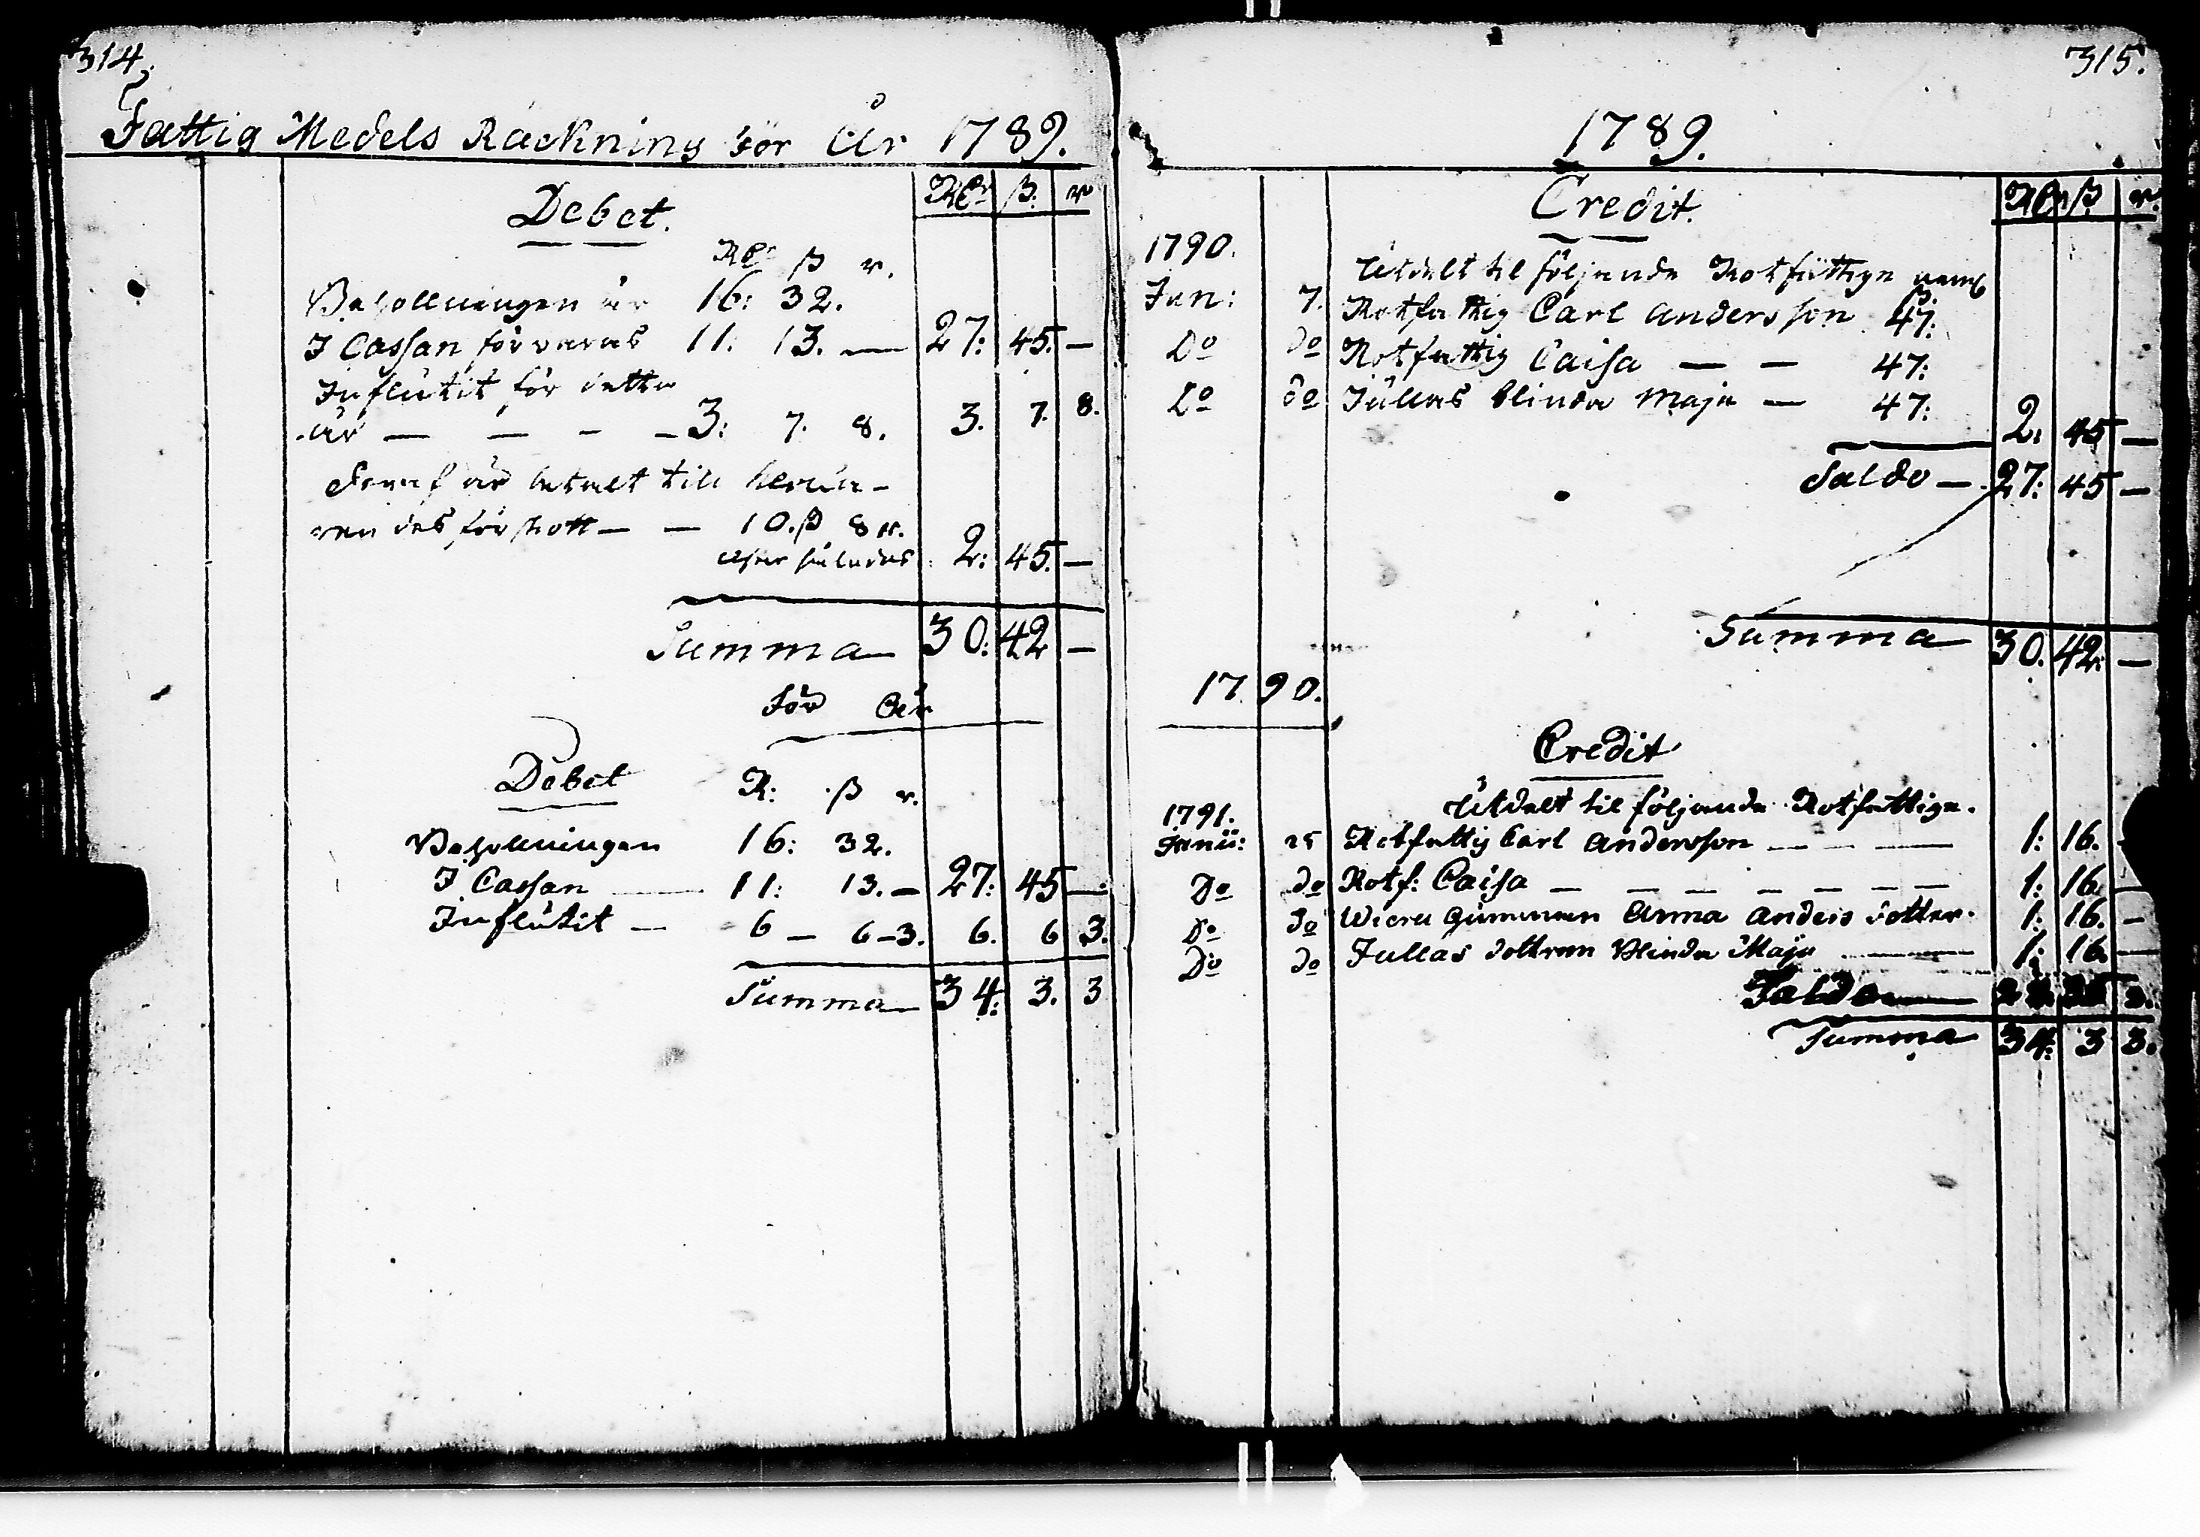 314.
Fattig Medels Räckning för År 1789.
Debet. Rdr ß: r
Rdr ß r.
Behollningen är 16: 32.
I Cassan förvaras 11. 13. — 27: 45. —
Influtit för detta
år — — - - 3: 7. 8. 3. 7. 8.
deraf är betalt till
des förskott — — 10. ß 8 r.
således 2: 45. —
Summa 30: 42 —
för År
Debet R: ß r.
Behollningen 16: 32.
I Cassan — 11: 13. — 27: 45 —
Influtit — 6 — 6 - 3. 6. 6 3.
Summa 34: 3. 3
315.
1789.
Credit. Rdr ß r.
1790. Utdelt til följande Rotfattige neml
ß.
Jan: 7. Rotfattig Carl Andersson 47:
Do do Rotfattig Caisa — — 47:
Do do Jullas blinda Maja — 47: 2: 45 —
Saldo — 27: 45 —
Summa 30. 42: —
1790.
Credit
1791. Utdelt til följande Rotfattige.
Janu: 25 Rotfattig Carl Andersson — — — 1: 16.
Do do Rotf: Caisa — — — — — — — 1: 16. —
Do do gumman Anna Anders dotter. 1: 16. —
Do do Jullas dottren Blinda Maja — 1: 16 —
Saldo — 3.
Summa 34: 3 3.